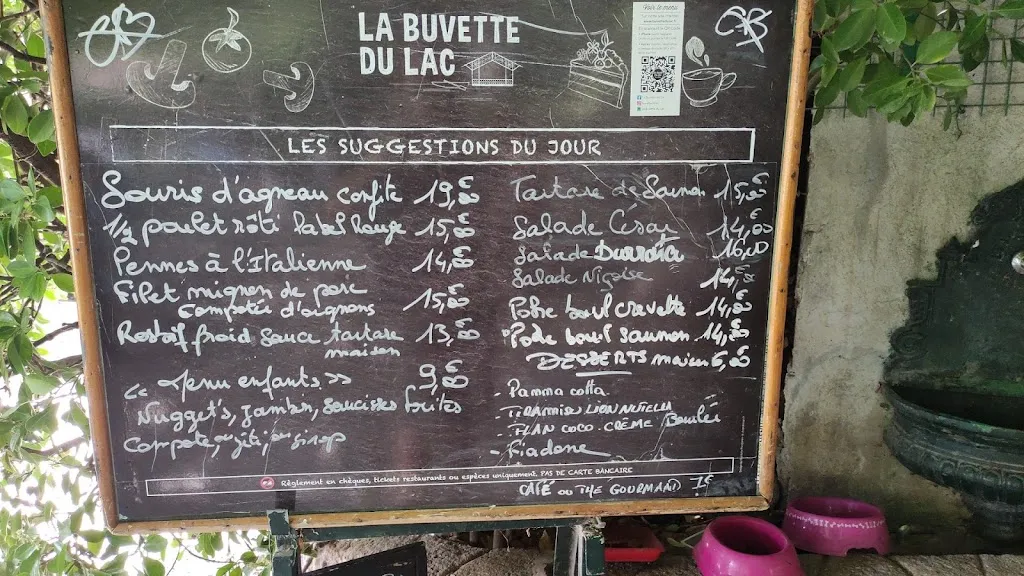 LA BUVETTE
DU LAC
LES SUGGESTIONS DU JOUR
Souris d'agneau confite 19,00€
1/2 poulet rôti label Rouge 15,00€
Pennes à l'Italienne 14,00€
Filet mignon de porc
compotée d'oignons 15,00€
Rostif froid sauce tartare 13,50€
maison
"Menu enfants" 9,00€
Nugget's, jambon, saucisses frites
Compote, ou glé, ou sirop
Tartare de Saumon 15,00€
Salade César 14,00€
Salade Burrata 16,00
Salade Niçoise 14,50€
Poke bowl crevette 14,00€
Poke bowl saumon 14,00€
DESSERTS maison 6,00€
- Panna cotta
- TIRAMISU LION NUTELLA
- FLAN COCO. CRÈME Brulée
- Fiadone
CAFÉ OU THE GOURMAND 7€
Règlement en chèques, tickets restaurants ou espèces uniquement. PAS DE CARTE BANCAIRE